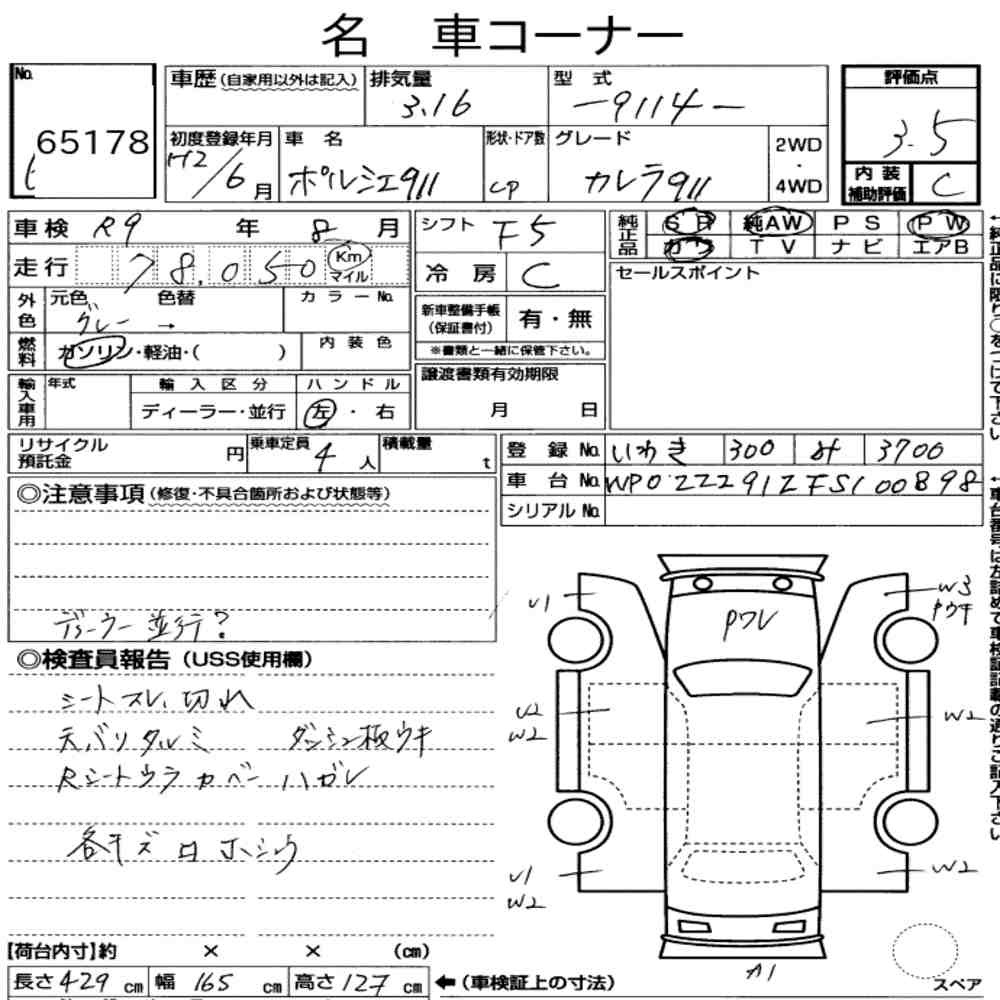 名 車コーナー
No. 65178
車歴 (自家用以外は記入)
排気量 3.16
型 式 -9114-
評価点 3.5
初度登録年月 H2/6月
車 名 ポルシェ911
形状・ドア数 CP
グレード カレラ911
2WD・4WD
内装補助評価 C
車検 R9 年 8 月
シフト F5
純正品 SR 純AW PS PW
カワ TV ナビ エアB
走行 78,050 Km マイル
冷房 C
セールスポイント
外色 元色 グレー → 色替 カラーNo.
新車整備手帳(保証書付) 有・無
※書類と一緒に保管下さい。
燃料 ガソリン・軽油・( )
内装色
輸入車用 年式 輸入区分 ハンドル
ディーラー・並行 左・右
譲渡書類有効期限
月 日
リサイクル預託金 円
乗車定員 4 人
積載量 t
登録No. いわき 300 み 3700
車台No. WP0ZZZ91ZFS100898
シリアルNo.
◎注意事項 (修復・不具合箇所および状態等)
ディーラー並行?
◎検査員報告 (USS使用欄)
シートスレ、切れ
天バリタルミ ダッシュ板ウキ
Rシートウラ カベー ハガレ
各キズ
U1
W3
Pウキ
Pワレ
U2
W2
W2
U1
W2
W2
A1
スペア
【荷台内寸】約 × × (cm)
長さ 429 cm 幅 165 cm 高さ 127 cm ←(車検証上の寸法)
←純正品に限り○をつけて下さい
←車台番号は左詰めで車検証記載の通りご記入下さい